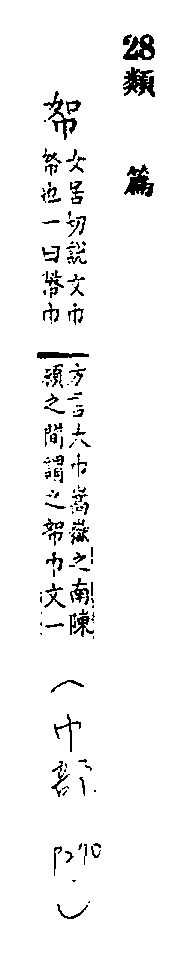 28 類篇
帤
女居切說文巾
帤也一曰幣巾
方言大巾嵩嶽之南陳
潁之間謂之帤巾文一
(巾部 P270)